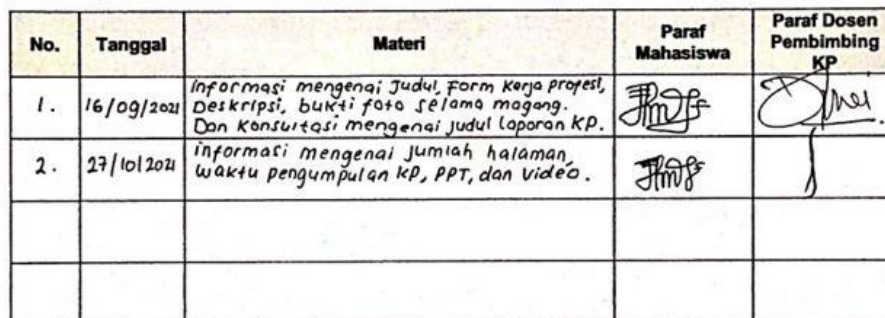 No. Tanggal Materi Paraf Mahasiswa Paraf Dosen Pembimbing KP
1. 16/09/2021 informasi mengenai Judul, Form Kerja profesi,
Deskripsi, bukti foto selama magang.
Dan Konsultasi mengenai judul laporan KP.
2. 27/10/2021 informasi mengenai jumlah halaman,
waktu pengumpulan KP, PPT, dan video.